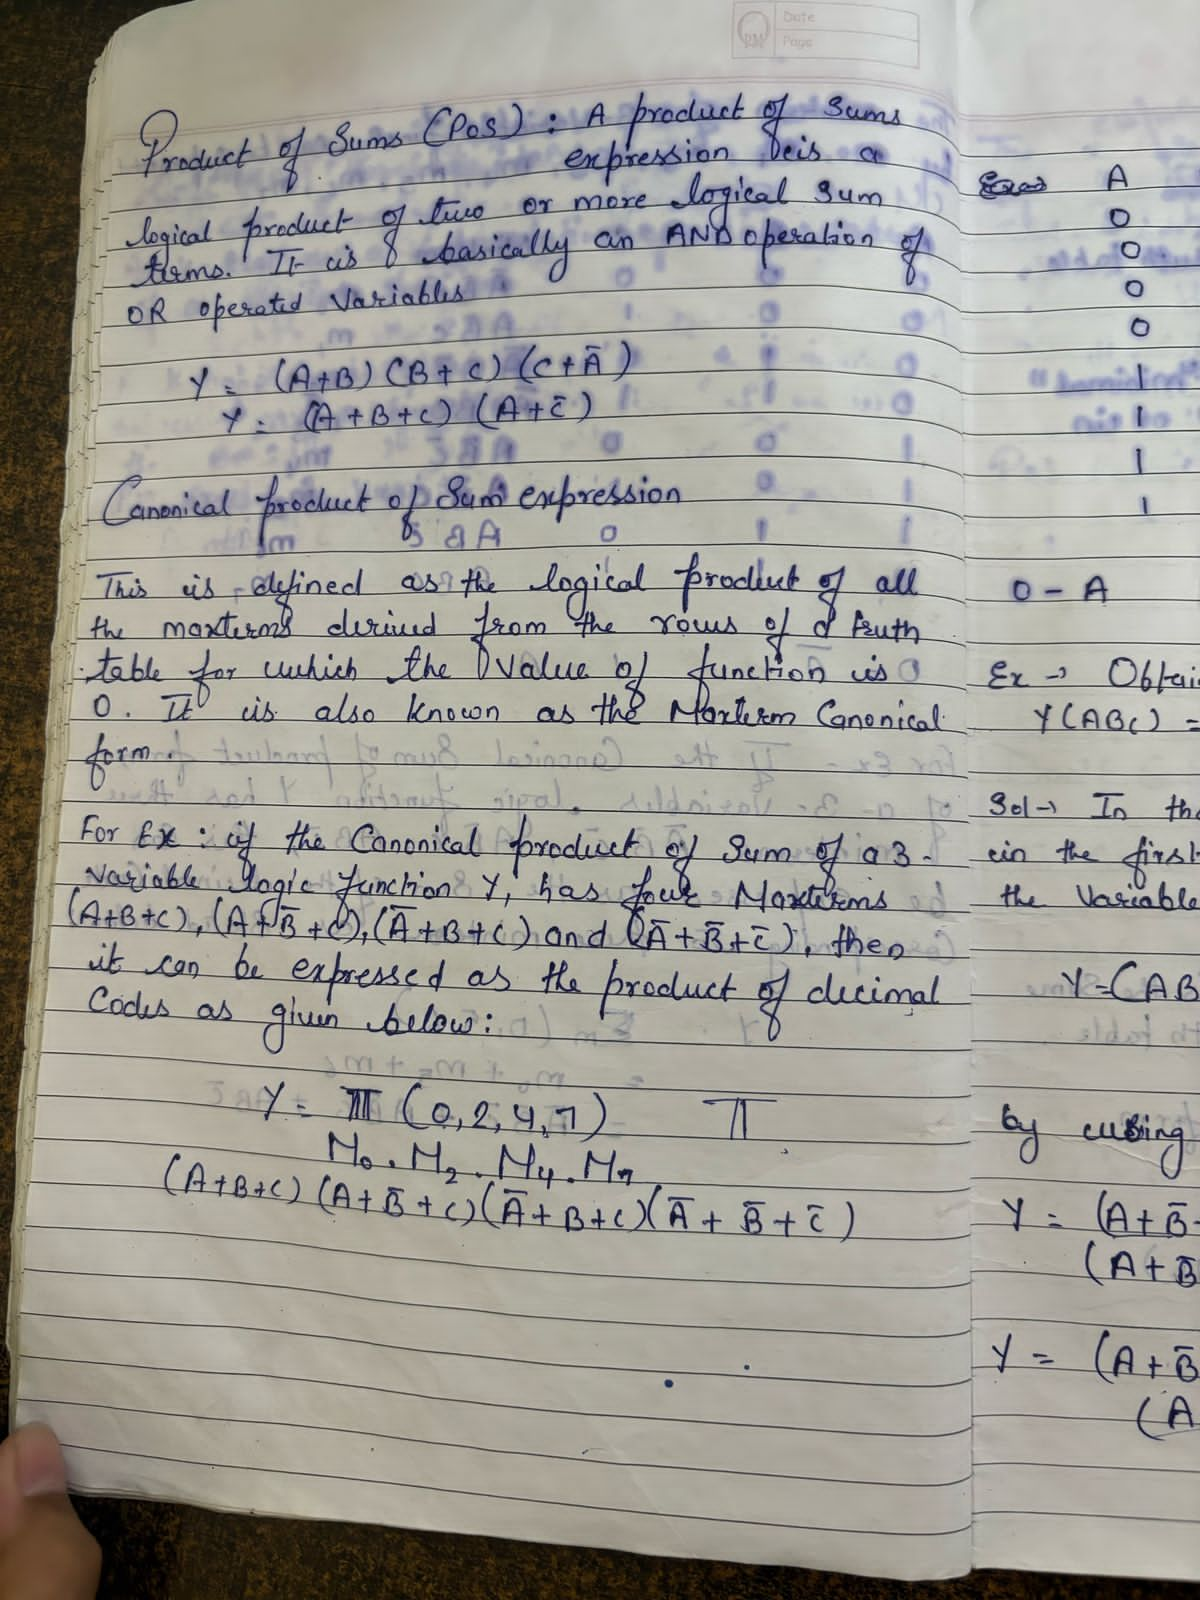 Date
Page
Product of Sums (POS) : A product of Sums
expression is a
logical product of two or more logical Sum
terms. It is basically an AND operation of
OR operated Variables
Y = (A+B) (B+C) (C+Ā)
Y = (A+B+C) (A+C̄)
Canonical product of Sum expression
This is defined as the logical product of all
the maxterms derived from the rows of a truth
table for which the value of function is
0. It is also known as the Maxterm Canonical
form.
For Ex : if the Canonical product of Sum of a 3-
variable logic function Y, has four Maxterms
(A+B+C), (A+B̄+C), (Ā+B+C) and (Ā+B̄+C̄), then
it can be expressed as the product of decimal
Codes as given below:
Y = π (0,2,4,7) π
M₀.M₂.M₄.M₇
(A+B+C) (A+B̄+C) (Ā+B+C) (Ā+B̄+C̄)
A
0
0
0
0
1
1
1
1
0 - A
Ex → Obtai
Y(ABC) =
Sol → In the
in the first
the Variable
Y = (AB
by using
Y = (A+B̄+
(A+B̄
Y = (A+B̄
(A